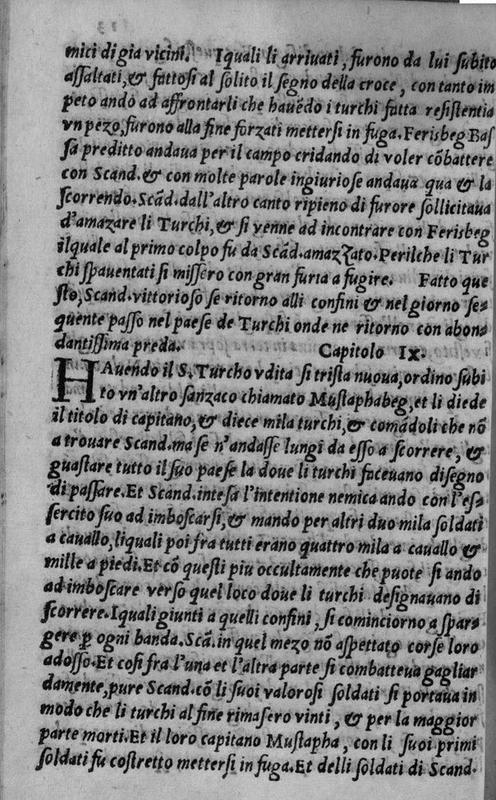 mici di gia vicini. Iquali li arriuati, furono da lui subito
assaltati,& fattosi al solito il segno della croce, con tanto im
peto andò ad affrontarli che hauẽdo i turchi fatta resistentia
vn pezo, furono alla fine forzati mettersi in fuga. Ferisbeg Bas
sa preditto andaua per il campo cridando di voler cõbattere
con Scand. & con molte parole ingiuriose andaua qua & la
scorrendo. Scãd. dall'altro canto ripieno di furore sollicitaua
d'amazare li Turchi, & si venne ad incontrare con Ferisbeg
ilquale al primo colpo fu da Scãd. amazzato. Perilche li Tur
chi spauentati si missero con gran furia a fugire. Fatto que
sto, Scand. vittorioso se ritorno alli confini & nel giorno se-
quente passo nel paese de Turchi onde ne ritorno con abon
dantissima preda. Capitolo IX.
HAuendo il S. Turcho vdita si trista nuoua, ordino subi
to vn'altro sanzaco chiamato Mustaphabeg, et li diede
il titolo di capitano, & diece mila turchi, & comãdoli che nõ
a trouare Scand. ma se n'andasse lungi da esso a scorrere, &
guastare tutto il suo paese la doue li turchi faceuano disegno
di passare. Et Scand. intesa l'intentione nemica ando con l'es
sercito suo ad imboscarsi, & mando per altri duo mila soldati
a cauallo, liquali poi fra tutti erano quattro mila a cauallo &
mille a piedi. Et cõ questi piu occultamente che puote si ando
ad imboscare verso quel loco doue li turchi designauano di
scorrere. Iquali giunti a quelli confini, si cominciorno a spar-
gere ꝑ ogni banda. Scã. in quel mezo nõ aspettato corse loro
adosso. Et cosi fra l'una et l'altra parte si combatteua gagliar
damente, pure Scand. cõ li suoi valorosi soldati si portaua in
modo che li turchi al fine rimasero vinti, & per la maggior
parte morti. Et il loro capitano Mustapha, con li suoi primi
soldati fu costretto mettersi in fuga. Et delli soldati di Scand.